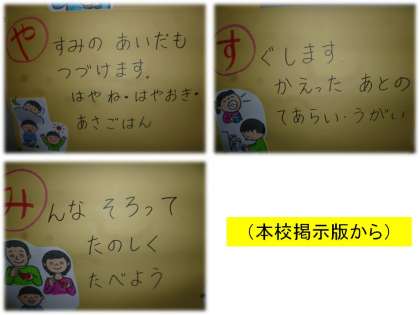 やすみの あいだも
つづけます。
はやね・はやおき・
あさごはん
すぐします
かえった あとの
てあらい・うがい
みんな そろって
たのしく
たべよう
（本校掲示版から）